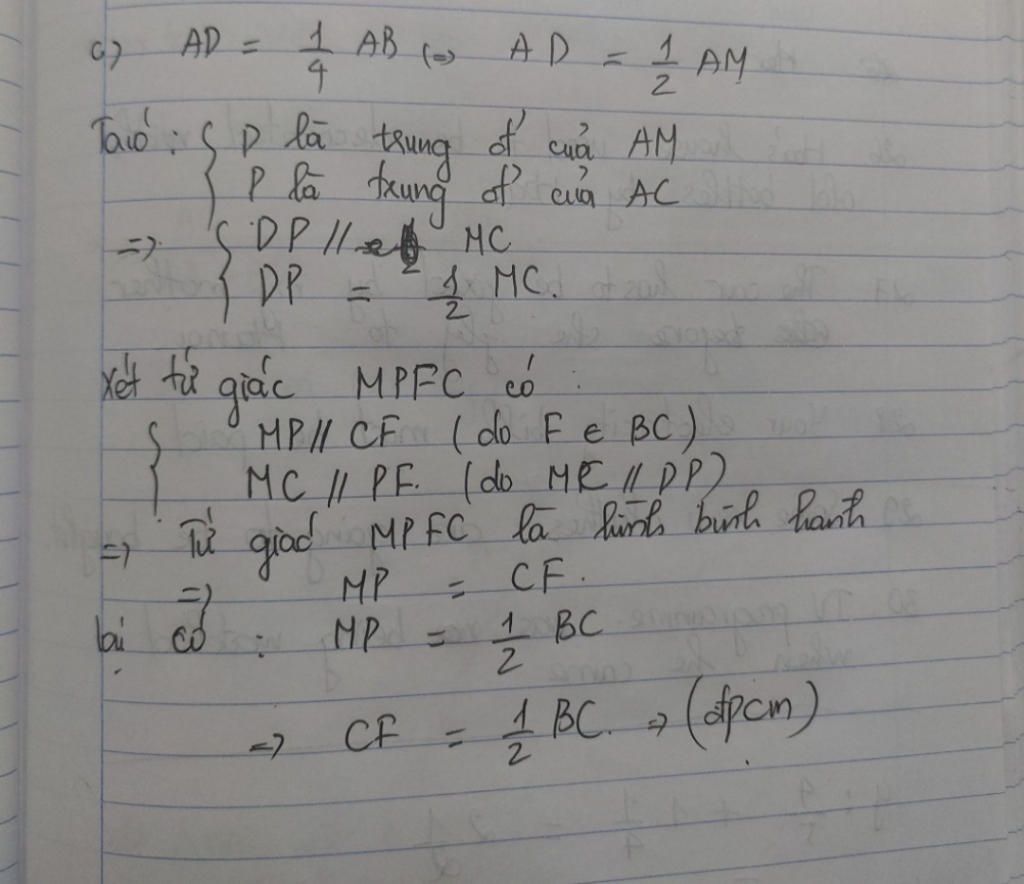 c) AD = 1/4 AB (=) AD = 1/2 AM
Ta có : { D là trung đ' của AM
P là trung đ' của AC
=> { DP // MC
DP = 1/2 MC.
Xét tứ giác MPFC có :
{ MP // CF ( do F e BC )
MC // PF. (do MC // DP)
=> Tứ giác MPFC là hình bình hành
=> MP = CF.
lại có : MP = 1/2 BC
=> CF = 1/2 BC. => (đpcm)